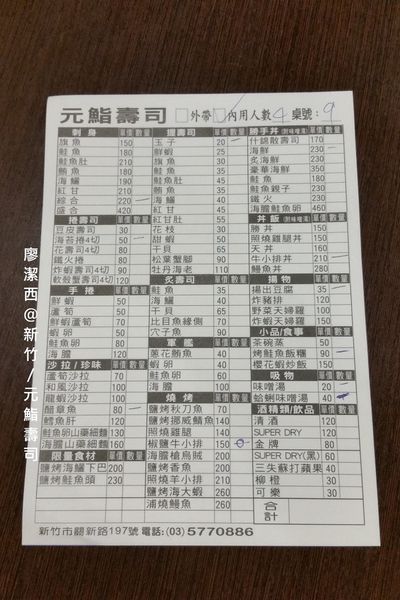 元鮨壽司 外帶 內用人數 4 桌號: 9
刺身 單價 數量
旗魚 150
鮭魚 180
鮭魚肚 210
鮪魚 180
海鱺 190
紅甘 210
綜合 220
盛合 420
捲壽司 單價 數量
豆皮壽司 30
海苔捲4切 50
花壽司4切 80
鐵火捲 80
炸蝦壽司4切 90
軟殼蟹壽司4切 120
手捲 單價 數量
鮮蝦 50
蘆筍 50
鮮蝦蘆筍 70
蝦卵 50
鮭魚卵 80
海膽 120
沙拉/珍味 單價 數量
蘆筍沙拉 70
和風沙拉 100
龍蝦沙拉 100
醋章魚 80
鱈魚肝 120
鮭魚卵山藥細麵 130
海膽山藥細麵 160
限量食材 單價 數量
鹽烤海鱺下巴 200
鹽烤鮭魚頭 230
握壽司 單價 數量
玉子 20
鮮蝦 30
旗魚 30
鮭魚 35
鮭魚肚 45
鮪魚 35
海鱺 40
紅甘 45
紅甘肚 55
花枝 30
甜蝦 50
干貝 65
松葉蟹腳 90
牡丹海老 110
炙壽司 單價 數量
鮭魚 35
海鱺 40
干貝 65
比目魚緣側 70
穴子魚 90
軍艦 單價 數量
蔥花鮪魚 40
蝦卵 40
鮭魚卵 60
海膽 100
燒烤 單價 數量
鹽烤秋刀魚 70
鹽烤挪威鯖魚 140
照燒雞腿 140
椒鹽牛小排 150
海膽槍烏賊 200
鹽烤香魚 200
照燒羊小排 210
鹽烤海大蝦 260
浦燒鰻魚 260
勝手丼 (附味噌湯) 單價 數量
什錦散壽司 170
海鮮 230
炙海鮮 230
豪華海鮮 350
鮭魚 180
鮭魚親子 230
鐵火 230
海膽鮭魚卵 460
丼飯 (附味噌湯) 單價 數量
勝丼 150
照燒雞腿丼 150
天丼 160
牛小排丼 210
鰻魚丼 280
揚物 單價 數量
揚出豆腐 35
炸豬排 120
野菜天婦羅 100
炸蝦天婦羅 150
小品/食事 單價 數量
茶碗蒸 50
烤鮭魚飯糰 90
櫻花蝦炒飯 150
吸物 單價 數量
味噌湯 20
蛤蜊味噌湯 40
酒精類/飲品 單價 數量
清酒 120
SUPER DRY 120
金牌 80
SUPER DRY(黑) 60
三矢蘇打蘋果 40
柳橙 30
可樂 30
合計
新竹市關新路197號 電話:(03) 5770886
廖潔西@新竹/元鮨壽司